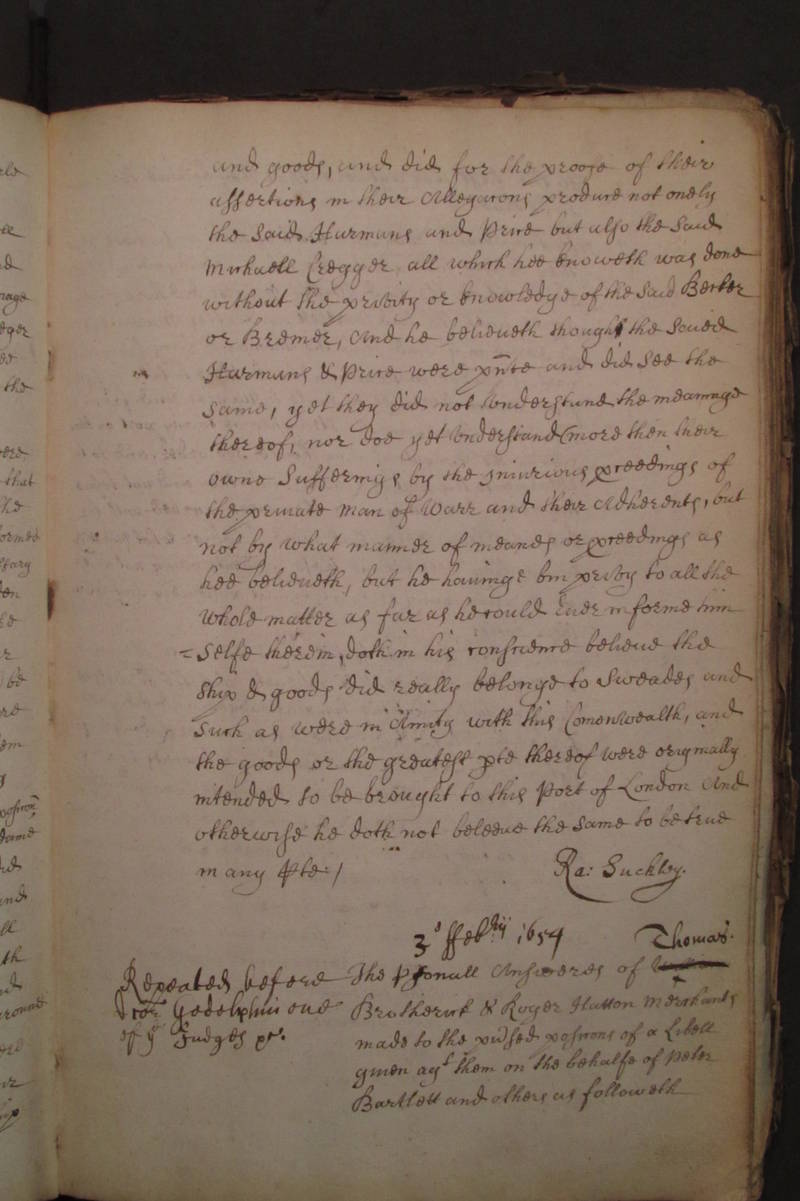 and goods, and did for the proofe of their
assertions in their Allegacons produce not onely
the said Harmans and Price but also the said
Michaell Cregger, all which hee knoweth was done
without the privity or knowledge of the said Becker
or Bremer, And he believeth though the saied
Harmans & Price were pnte and did see the
same, yet they did not understand the meaninge
thereof, nor doe yet understand more then their
owne Sufferings by the iniurious pceedings of
the private man of Warr and their Adherents, but
not by what manner of meanes or pceedings as
hee believeth, but he havinge bin privy to all the
whole matter as far as he could ever informe him
=selfe therein, doth in his conscience believe the
ship & goods did really belonge to Sweades and
such as were in Amity with this Comonwealth, and
the goods or the greatest pte thereof were originally
intended to be brought to this Port of London And
otherwise he doth not beleeve the same to be true
in any pte /
Ra: Suckley.
3º ffebrii 1654
Thomas
The psonall Answeres of
Brotherick & Roger Hutton Merchants
made to the pposicons of a Libell
given agt them on the behalfe of Peter
Bartlett and others as followeth
Repeated before
Godolphin one
of ye Judges